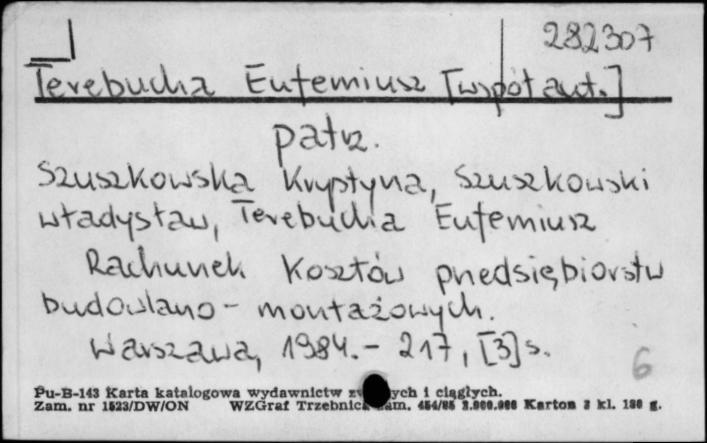 282307
Terebucha Eufemiusz [współaut.]
patrz.
Szuszkowska Krystyna, Szuszkowski
Władysław, Terebucha Eufemiusz
Rachunek kosztów przedsiębiorstw
budowlano - montażowych.
Warszawa, 1984. - 217, [3] s.
6
Pu-B-143 Karta katalogowa wydawnictw ych i ciągłych.
Zam. nr 1523/DW/ON WZGraf Trzebnica zam. 454/85 2.000.000 Karton 2 kl. 180 g.